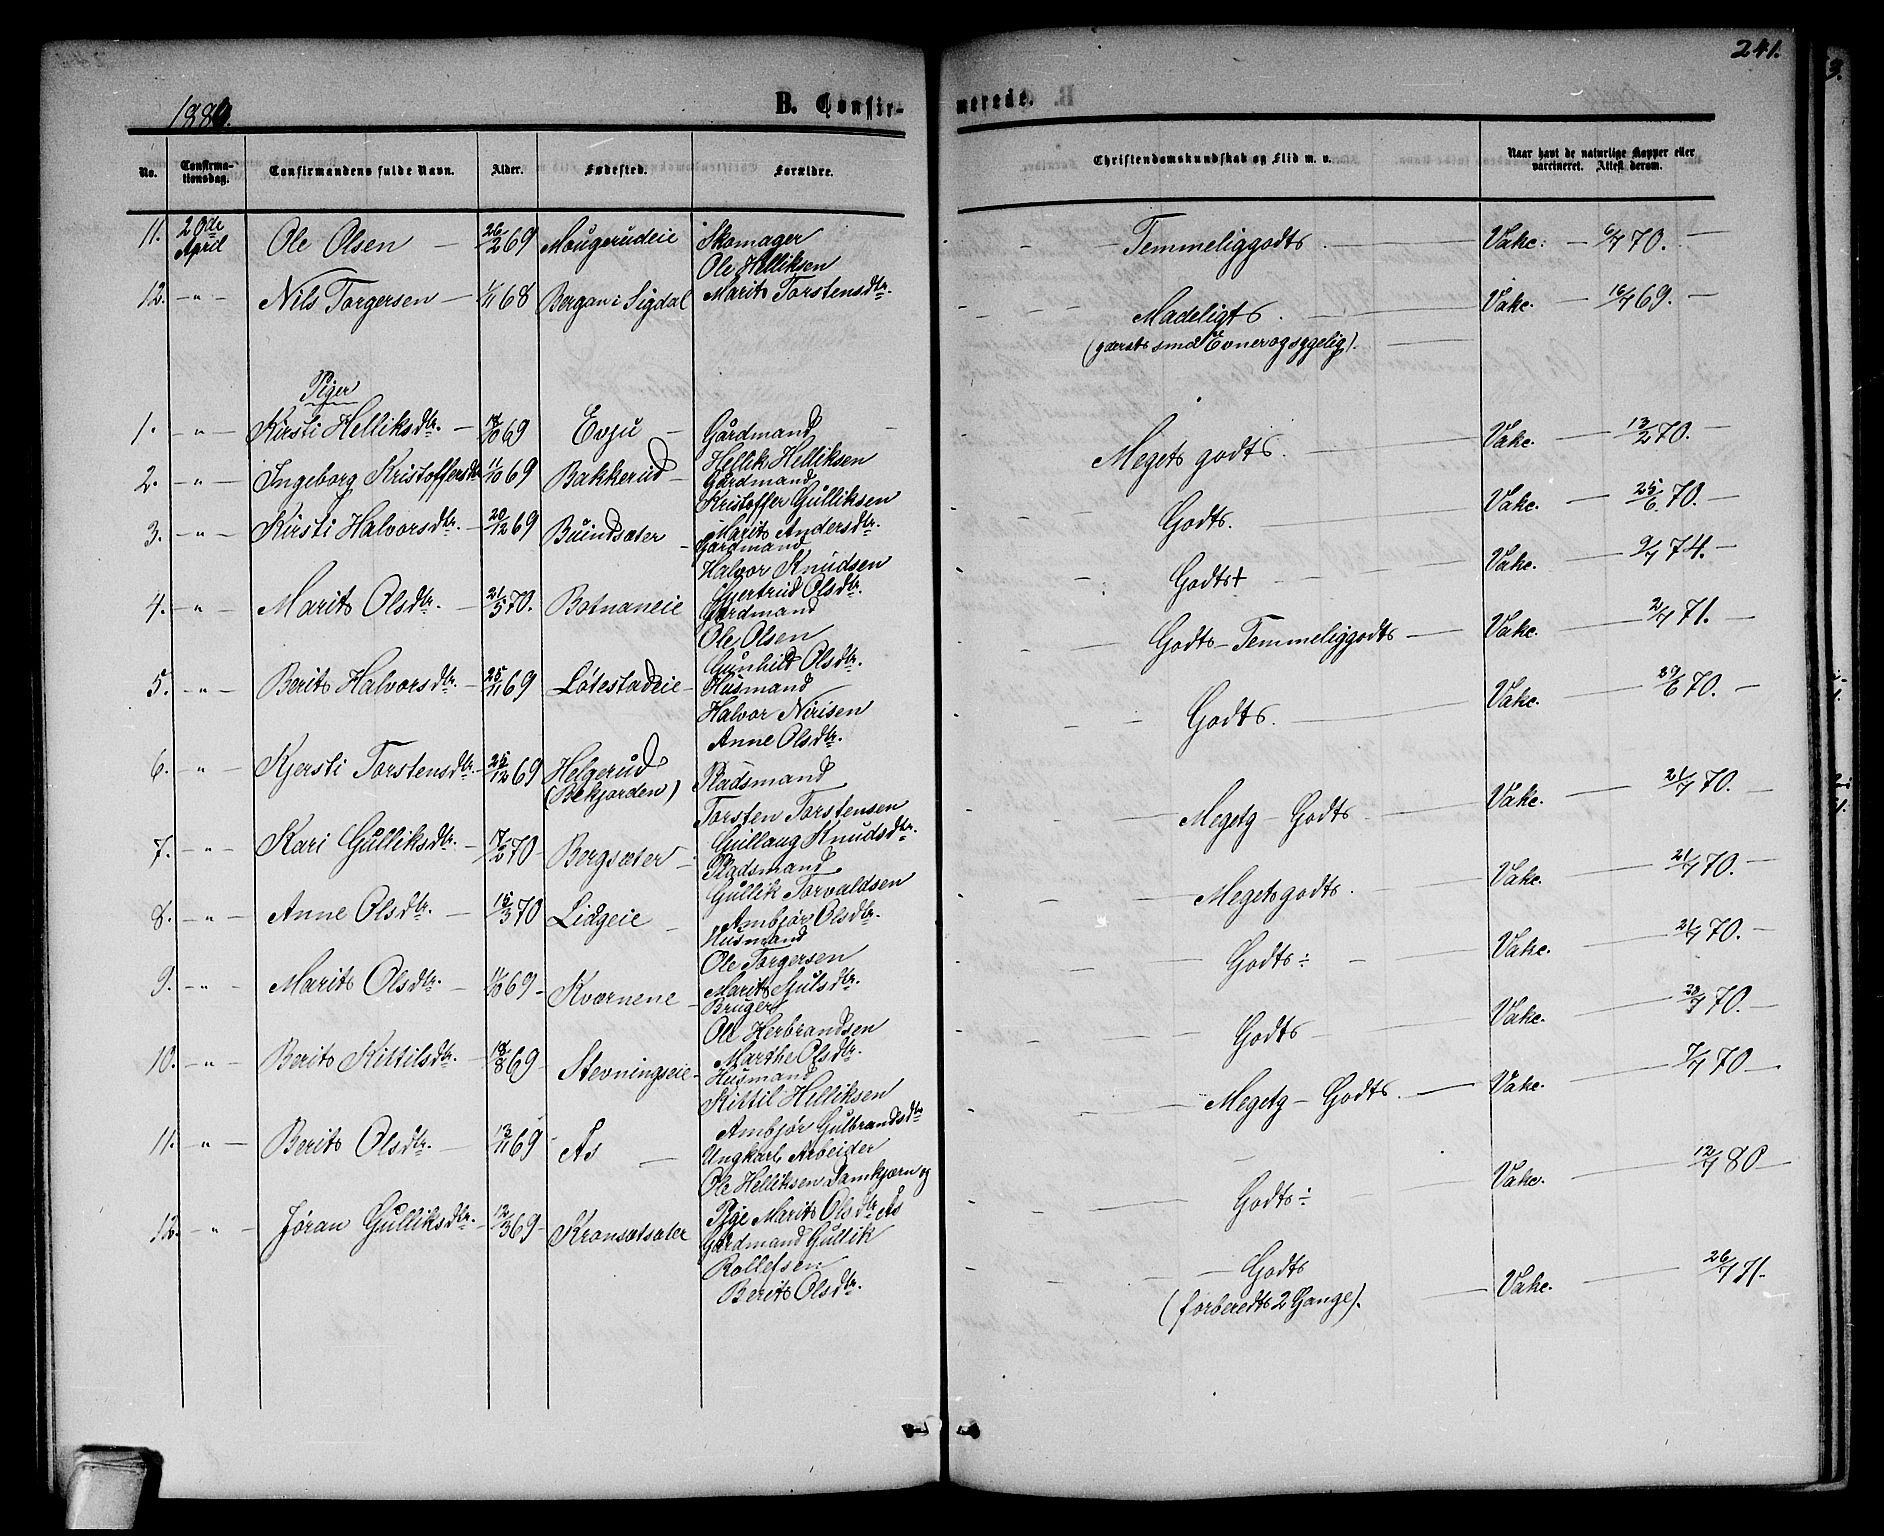 241.
1884.
B. Confir-
merede.
No.
Confirma-
tionsdag.
Confirmandens fulde Navn.
Alder.
Fødested.
Forældre.
Christendomskundskab og Flid m. v.
Naar havt de naturlige Kopper eller
vaccineret. Attest derom.
11. 20de April Ole Olsen — 26/2 69 Mougerudeie Skomager
Ole Helliksen
Marit Torstensdtr.
Temmelig godt. Vakc. — 6/7 70. —
12. — " — Nils Torgersen — 1/11 68 Bergan i Sigdal
Madeligt. Vakc. — 16/7 69. —
(gdersts smd Evner og sygelig).
Piger
1. — " — Kirsti Helliksdtr. — 14/10 69 Evju — Gårdmand
Hellik Helliksen
Meget godt. Vakc. — 13/2 70. —
2. — " — Ingeborg Kristoffersdtr 11/10 69 Bakkerud — Gårdmand
Kristoffer Gulliksen
Marit Andersdtr.
Godt. Vakc. — 25/6 70. —
3. — " — Kirsti Halvorsdtr. — 20/12 69 Buindsæter — Gårdmand
Halvor Knudsen
Gjertrud Olsdtr.
Godt + Vakc. — 9/7 74. —
4. — " — Marit Olsdtr. — 21/5 70. Botnaneie Gårdmand
Ole Olsen
Gunhild Olsdtr.
Godt — Temmelig godt — Vakc. — 2/7 71. —
5. — " — Berit Halvorsdtr. — 25/11 69 Løtestadeie — Husmand
Halvor Nirisen
Anne Olsdtr.
Godt. Vakc. 29/6 70. —
6. — " — Kjersti Torstensdtr. 25/12 69 Helgerud
(Bekjorden) Pladsmand
Torsten Torstensen
Gullaug Knudsdtr.
Megetg — Godt. Vakc. 21/7 70. —
7. — " — Kari Gulliksdtr. — 17/2 70 — Bergsæter — Pladsmand
Gullik Torvaldsen
Ambjør Olsdtr.
Meget godt. Vakc. 21/7 70. —
8. — " — Anne Olsdtr. — 15/3 70 Lidgeie — Husmand
Ole Torgersen
Marit Sjulsdtr.
Godt ÷ Vakc. 21/7 70. —
9. — " — Marit Olsdtr. — 11/10 69 — Kværnene — Bruger
Ole Herbrandsen
Marthe Olsdtr.
Godt — Vakc. 23/7 70. —
10. — " — Berit Kittilsdtr. 18/8 69 — Stevningseie — Husmand
Kittil Helliksen
Ambjør Gulbrandsdtr
Megetg — Godt. — Vakc. 7/7 70 —
11. — " — Berit Olsdtr. — 13/11 69 — Ås — Ungkarl Arbeider
Ole Helliksen Damkjærn og
Pige Marit Olsdtr Ås
Godt ÷ Vakc. 12/7 80 —
12. — " — Jøran Gulliksdtr. — 12/3 69 — Kronsætsæter Gårdmand Gullik
Rollefsen
Berit Olsdtr.
— Godt — Vakc. 26/7 71.
(forberedt 2 Gange).